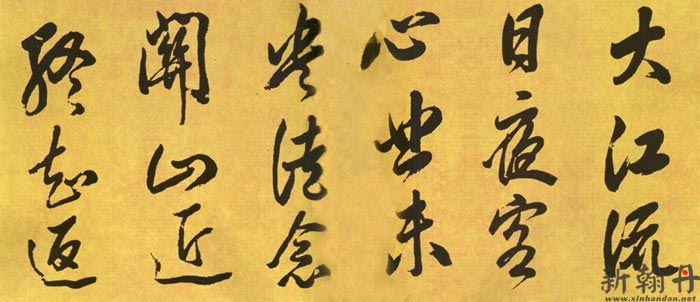 大江流
日夜客
心悲未
央徒念
關山近
終知返
新翰丹
www.xinhandan.net